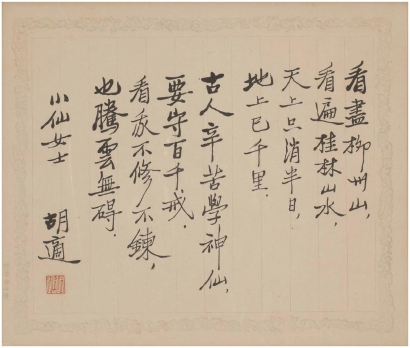 看盡柳州山，
看遍桂林山水，
天上只消半日，
地上已千里．
古人辛苦學神仙，
要守百千戒．
看我不修不鍊，
也騰雲無碍．
小仙女士
胡適